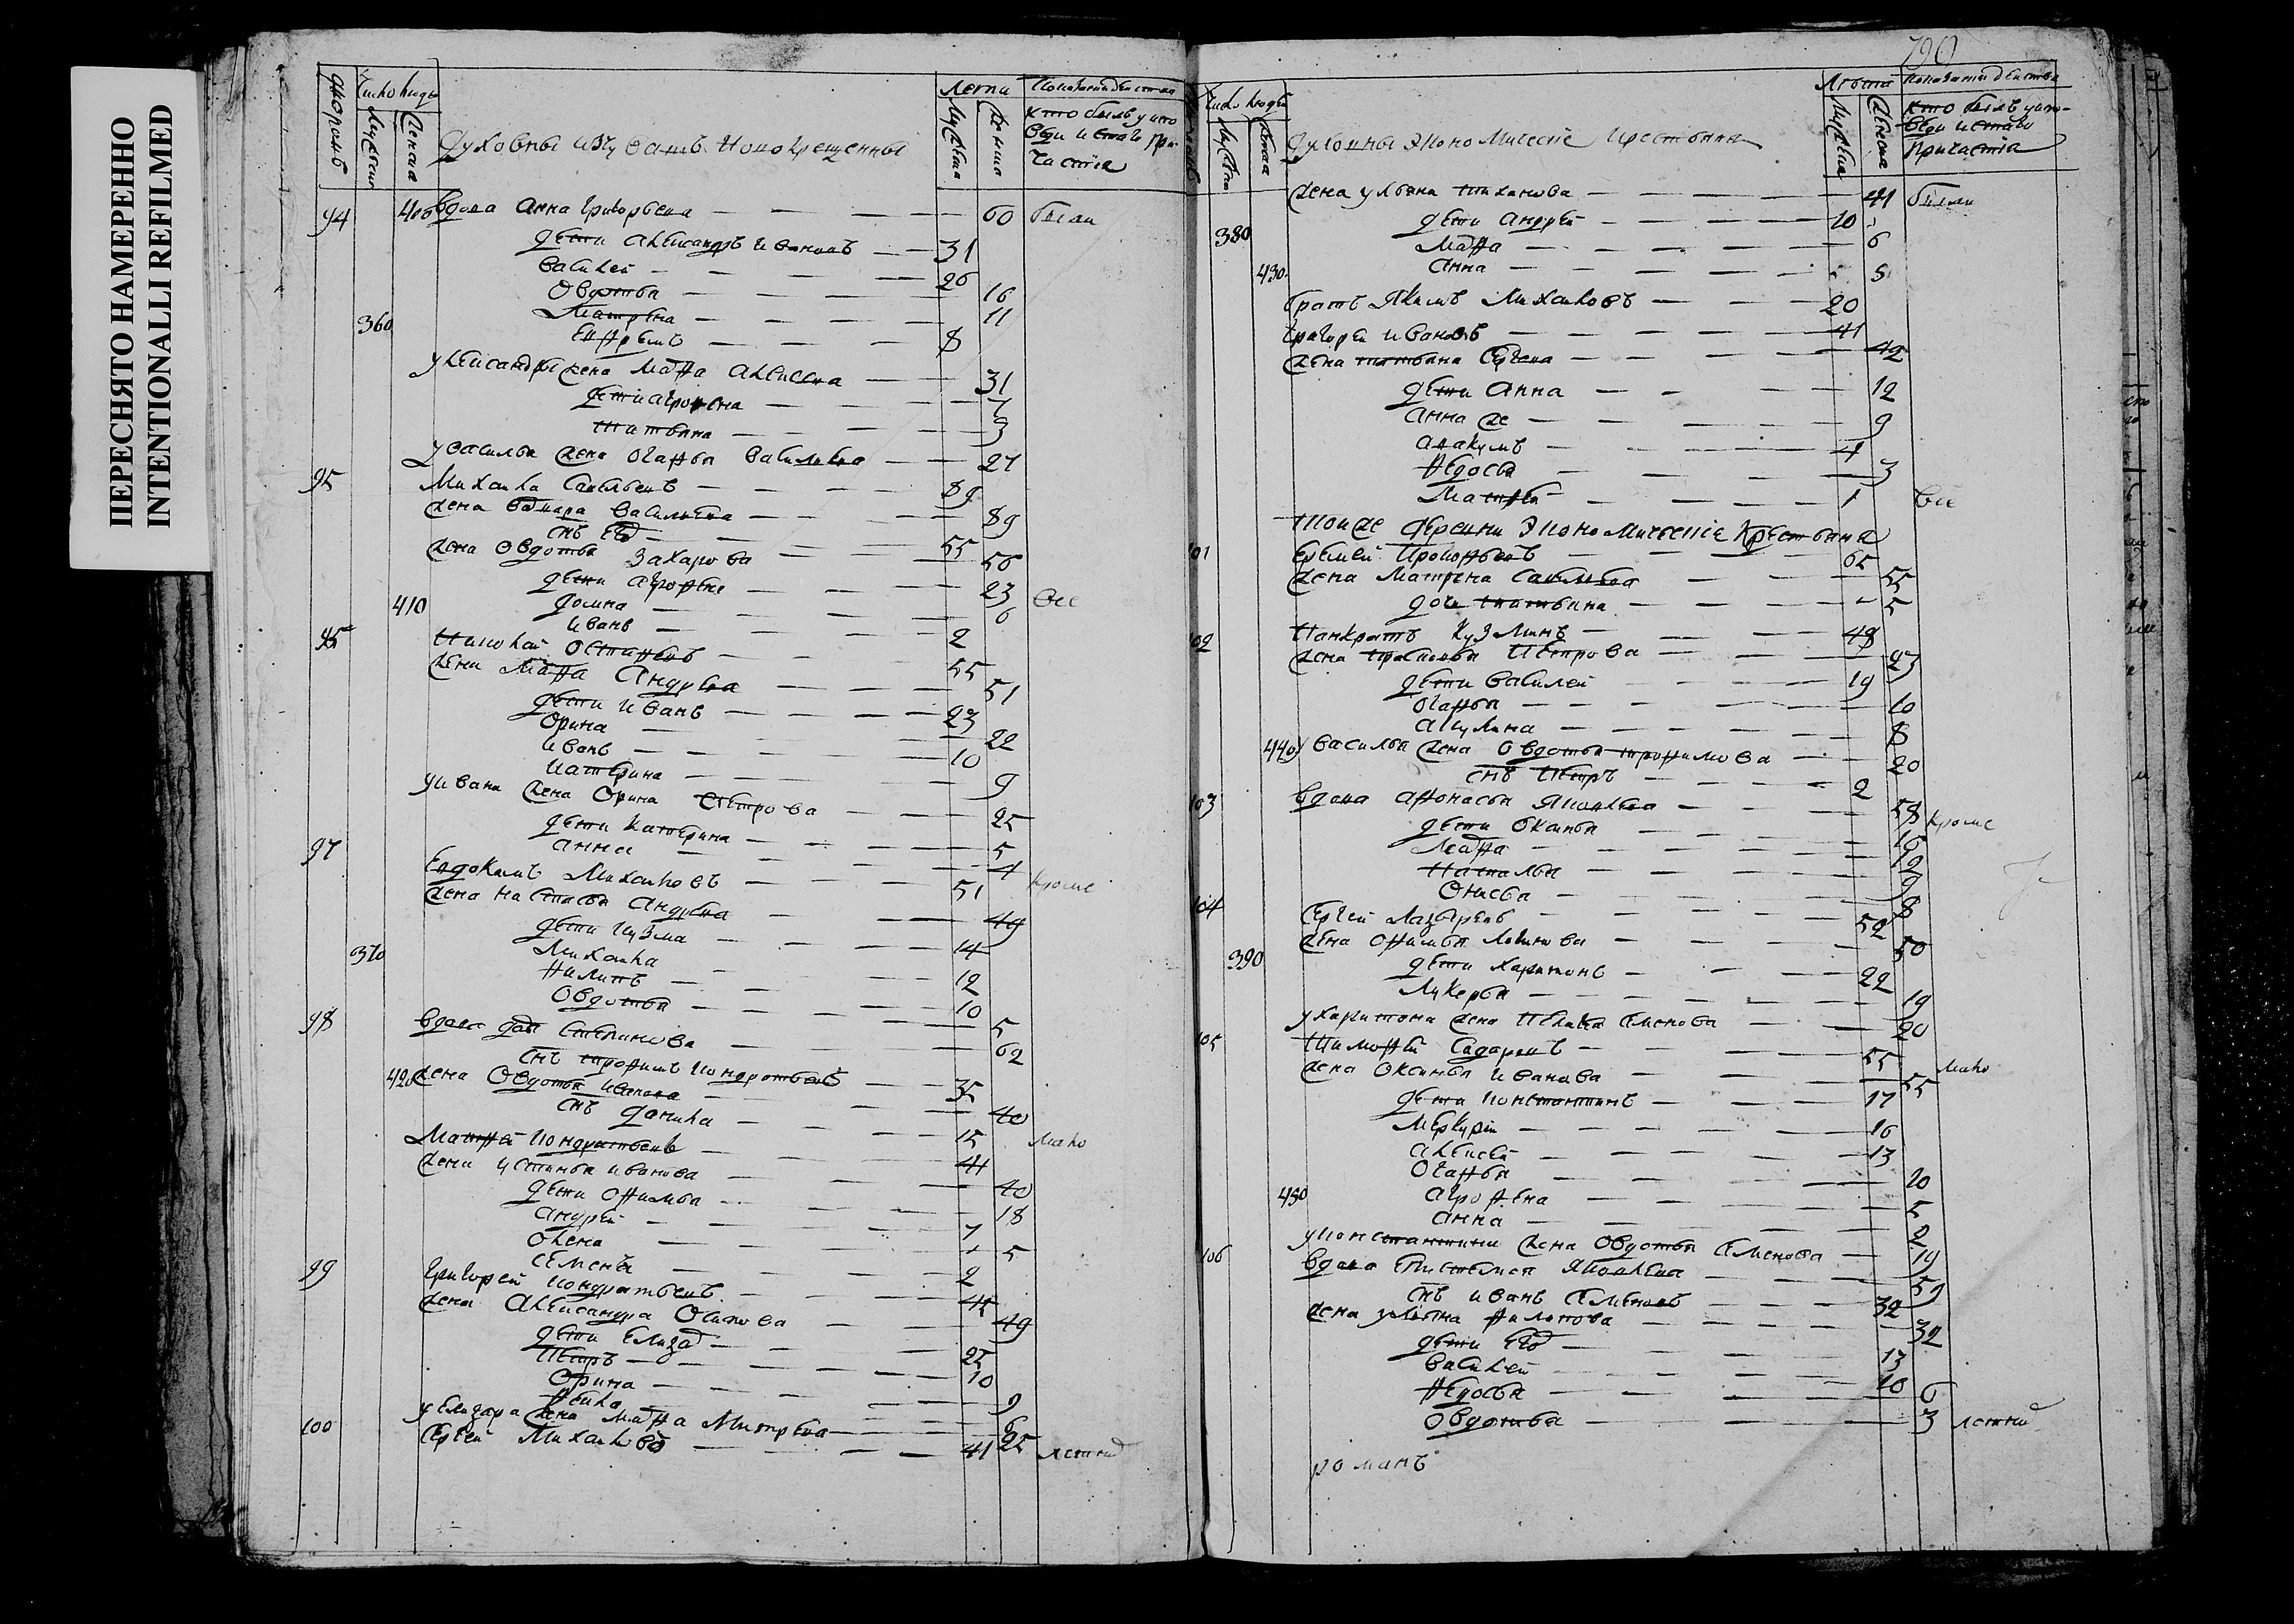 ПЕРЕСНЯТО НАМЕРЕННО
INTENTIONALLI REFILMED
Число людей
Лета
Духовны из новокрещенны
кто былъ у испо
веди и с.таго при
частия
94 406 вдова Анна Григорьева 60 были
дети Александръ Ивановъ 31
Василей 26
Овдотья 16
360 Матрена 11
8
у Александры жена Мафа Алексеева 31
дети Агрофена 7
Татьяна 3
у Василья жена Огафья Васильева 27
95 Михайла Савельевъ 89
жена Васильева 89
снъ 55
жена Овдотья Захарова 56
дети Агрофена 23 все
410 Домна 6
Иванъ 2
Николай Остафьевъ 55
жена Мафа Андреева 51
дети Иванъ 23
Орина 22
Иванъ 10
Катерина 9
у Ивана жена Орина Петрова 25
дети Катерина 5
Анна 4
97 Евдокимъ Михайловъ 51 кроме
жена Настасья Андреева 49
дети Кузма 14
370 Михайла 12
Филипъ 10
Овдотья 5
98 вдова Степанова 62
снъ Трофимъ Кондратьевъ 35
420 жена Овдотья Иванова 40
снъ Данила 15 мало
Матфей Кондратьевъ 41
жена Устинья Иванова 40
дети Офимья 18
Андрей 7
Олена 5
Семенъ 2
99 Григорей Кондратьевъ 45
жена Александра Осипова 49
дети Елизаръ 25
Петръ 10
Орина 9
Фекла 6
у Елизара жена Мафа Митрева 25
100 Сергей Михайловъ 41 летний
790
Число людей
Лета
Духовны экономические крестьяна
кто былъ у испо-
веди и с.таго
причастия
жена Ульяна Тиханова 41 были
дети Андрей 10
380 Мафа 6
430 Анна 5
братъ Якимъ Михайловъ 20
Григорей Ивановъ 41
жена Татьяна Сергеева 42
дети Анна 12
Анна же 9
Авакумъ 4
Федосья 3
Матфей 1 все
тои же деревни экономические крестьяна
101 Еремей Прокофьевъ 65
жена Матрена Савельева 55
дочь Татьяна 5
102 Панкратъ Кузминъ 48
жена Прасковья Петрова 47
дети Василей 19
Огафья 10
Акулина 8
440 у Василья жена Овдотья Трофимова 20
снъ Петръ 2
103 вдова Афонасья Яковлева 58 кроме
дети Оксинья 16
Мафа 12
Наталья 9
Онисья 8
104 Сергей Лазаревъ 52
жена Офимья Логинова 50
390 дети Харитонъ 22
Лукерья 19
у Харитона жена Пелагея Семенова 20
105 Тимофей Сидаровъ 55 мало
жена Оксинья Иванова 55
дети Константинъ 17
Меркурей 16
Алексей 13
Огафья 10
450 Агрофена 5
Анна 2
у Константина жена Овдотья Семенова 19
106 вдова Епистемея Яковлева 59
снъ Иванъ Семеновъ 32
жена Ульяна Филипова 32
дети 13
Василей 10
Федосья 6
Овдотья 3 летний
романъ